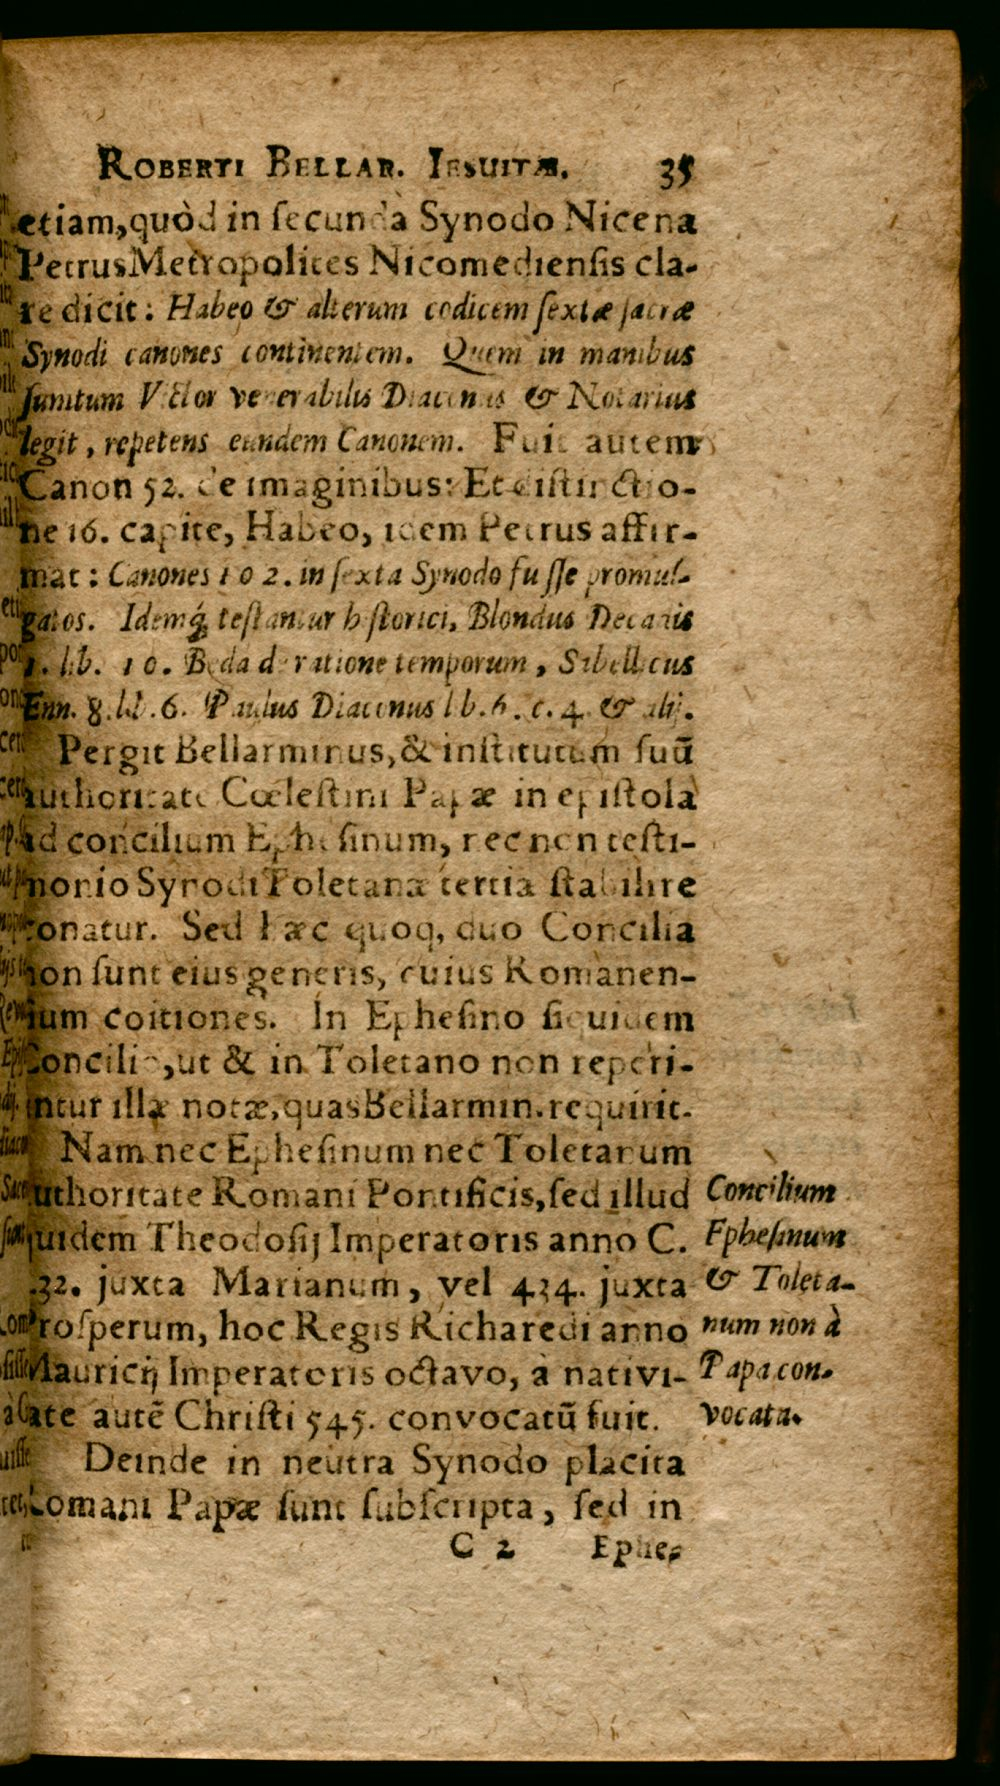 ROBERTI BELLAR. IESUITÆ. 35
etiam, quòd in ſecunda Synodo Nicena
Petrus Metropolites Nicomedienſis cla-
re dicit: Habeo & alterum codicem ſextæ ſacræ
Synodi canones continentem. Quem in manibus
ſumtum Victor venerabilis Diaconus & Notarius
legit, repetens eundem Canonem. Fuit autem
Canon 52. de imaginibus: Et diſtinctio-
ne 16. capite, Habeo, idem Petrus affir-
mat: Canones 102. in ſexta Synodo fuſſe promul-
gatos. Idemq́; teſtantur hiſtorici, Blondus Decadis
1. lib. 10. Beda de ratione temporum, Sabellicus
Enn. 8. lib. 6. Paulus Diaconus lib. 6. c. 4. & alij.
Pergit Bellarminus, & inſtitutum ſuū
authoritate Cœleſtini Papæ in epiſtola
ad concilium Epheſinum, nec non teſti-
monio Synodi Toletanæ tertia ſtabilire
conatur. Sed hæc quoq, duo Concilia
non ſunt eius generis, cuius Romanen-
ſium coitiones. In Epheſino ſiquidem
Concilio, ut & in Toletano non reperi-
untur illæ notæ, quas Bellarmin. requirit.
Nam nec Epheſinum nec Toletanum
authoritate Romani Pontificis, ſed illud
quidem Theodoſij Imperatoris anno C.
432. juxta Marianum, vel 434. juxta
Proſperum, hoc Regis Richaredi anno
Mauricij Imperatoris octavo, à nativi-
tate autē Chriſti 545. convocatū fuit.
Concilium
Epheſinum
& Toleta-
num non à
Papa con-
vocata.
Deinde in neutra Synodo placita
Romani Papæ ſunt ſubſcripta, ſed in
C 2 Ephe-